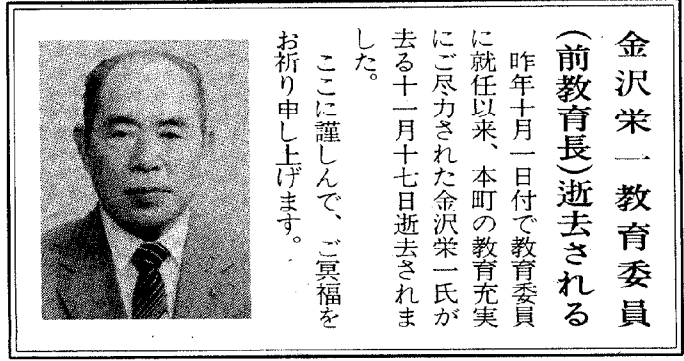 金沢栄一教育委員
(前教育長)逝去される
昨年十月一日付で教育委員
に就任以来、本町の教育充実
にご尽力された金沢栄一氏が
去る十一月十七日逝去されま
した。
ここに謹しんで、ご冥福を
お祈り申し上げます。